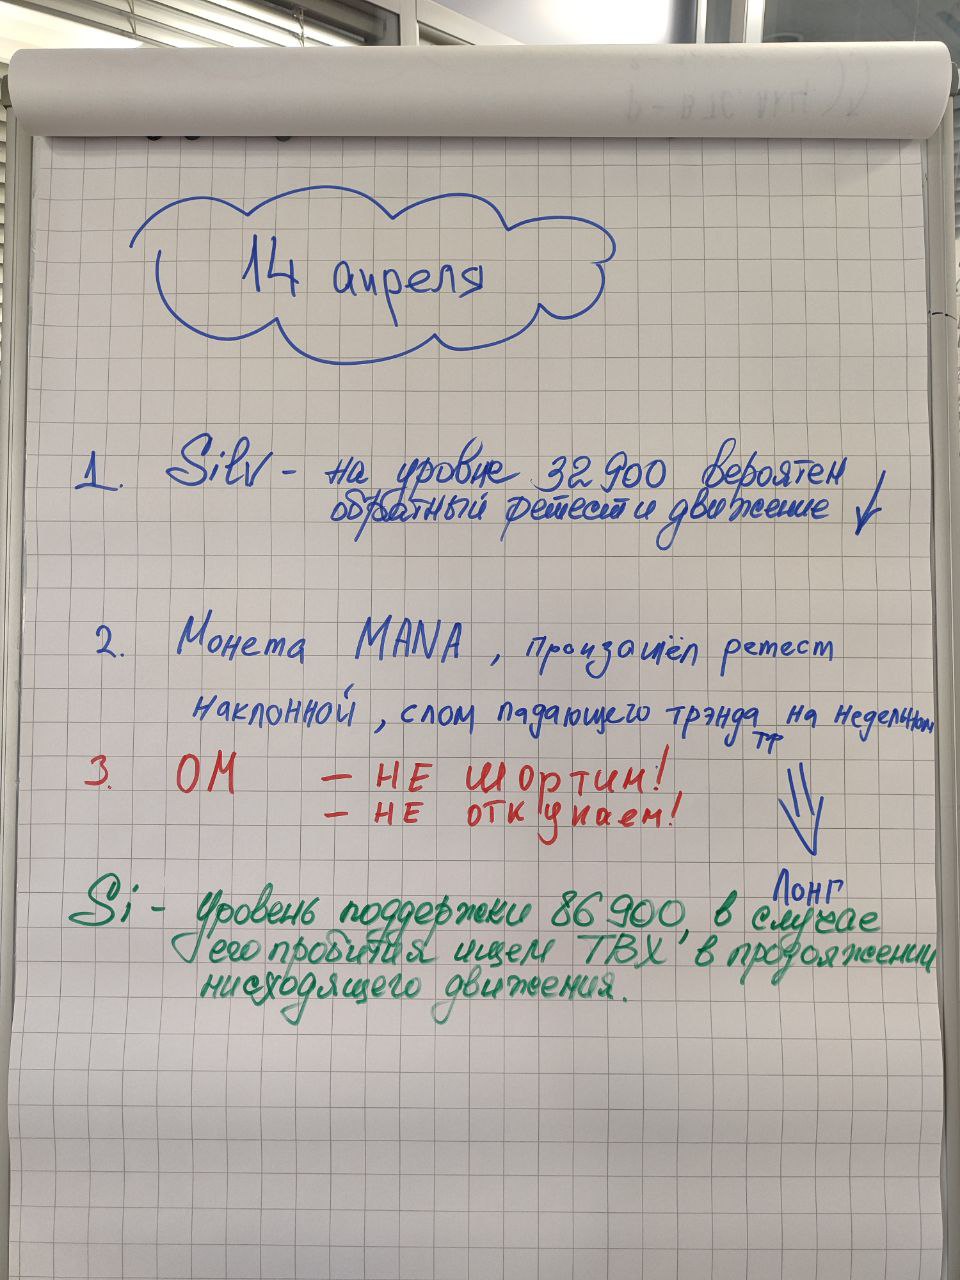 14 апреля
1. Silv - на уровне 32 900 вероятен
обратный ретест и движение ↓
2. Монета MANA, произашёл ретест
наклонной, слом падающего трэнда на недельном
ТФ
3. ОМ - НЕ ШОРТИМ!
- НЕ ОТКУПАЕМ!
Лонг
Si - Уровень поддержки 86 900, в случае
его пробития ищем ТВХ в продолжении
нисходящего движения.